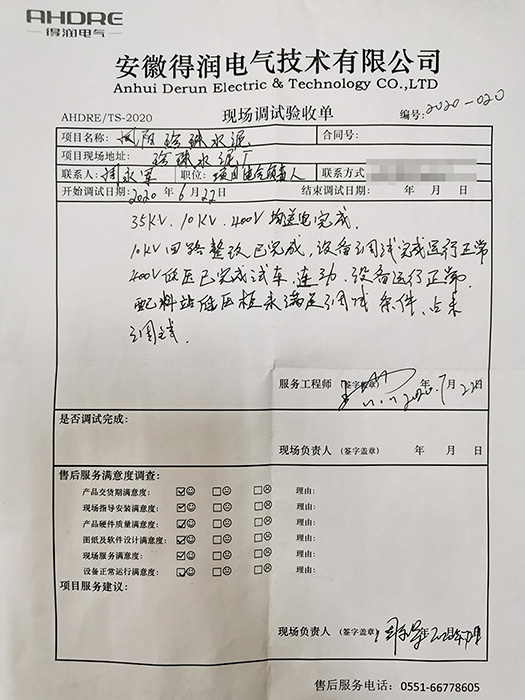 AHDRE
得润电气
安徽得润电气技术有限公司
Anhui Derun Electric & Technology CO.,LTD
AHDRE/TS-2020 现场调试验收单 编号:2020-020
项目名称: 凤阳珍珠水泥 合同号:
项目现场地址: 珍珠水泥厂
联系人: 职位: 项目电气负责人 联系方式:
开始调试日期: 2020年6月22日 结束调试日期: 年 月 日
35KV. 10KV. 400V 均送电完成.
10KV回路整改已完成,设备调试完成运行正常
400V低压已完成试车,连动,设备运行正常.
配料站低压柜未满足调试条件,占未
调试.
服务工程师 (签字盖章) 2020年7月22日
是否调试完成:
现场负责人 (签字盖章) 年 月 日
售后服务满意度调查:
产品交货期满意度: ☑☺ □😐 □☹ 理由:
现场指导安装满意度: ☑☺ □😐 □☹ 理由:
产品硬件质量满意度: ☑☺ □😐 □☹ 理由:
图纸及软件设计满意度: ☑☺ □😐 □☹ 理由:
现场服务满意度: ☑☺ □😐 □☹ 理由:
设备正常运行满意度: ☑☺ □😐 □☹ 理由:
项目服务建议:
现场负责人 (签字盖章)
售后服务电话: 0551-66778605